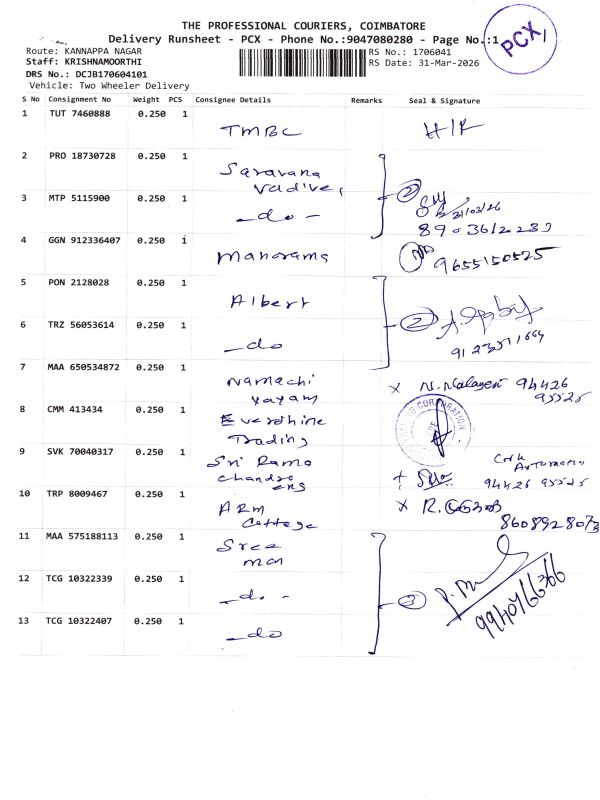 THE PROFESSIONAL COURIERS, COIMBATORE
Delivery Runsheet - PCX - Phone No.:9047080280 - Page No.:1
PCX
Route: KANNAPPA NAGAR
RS No.: 1706041
Staff: KRISHNAMOORTHI
RS Date: 31-Mar-2026
DRS No.: DCJB170604101
Vehicle: Two Wheeler Delivery
S No Consignment No Weight PCS Consignee Details Remarks Seal & Signature
1 TUT 7460888 0.250 1
TMBC
2 PRO 18730728 0.250 1
Saravana
Vadivel
2
31/03/26
3 MTP 5115900 0.250 1
-do-
4 GGN 912336407 0.250 1
Manorama
9655150525
5 PON 2128028 0.250 1
Albert
2
6 TRZ 56053614 0.250 1
-do
7 MAA 650534872 0.250 1
x 94426
95525
8 CMM 413434 0.250 1
Evershine
Trading
CORPORATION
9 SVK 70040317 0.250 1
Sri Rama
Chandra
engs
94426 95525
10 TRP 8009467 0.250 1
ARM
Cottage
x
8608928073
11 MAA 575188113 0.250 1
Sree
12 TCG 10322339 0.250 1
-do-
3
13 TCG 10322407 0.250 1
-do